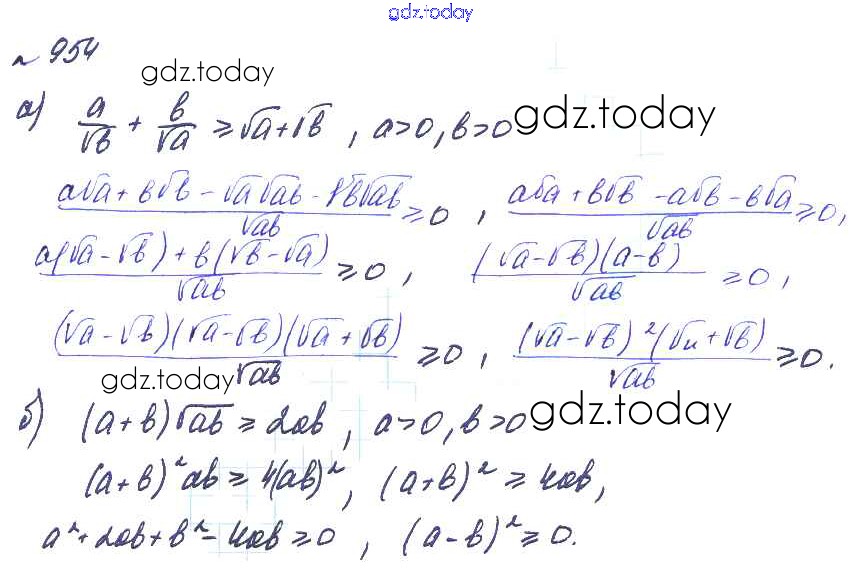 gdz.today
№ 954
gdz.today
а) a/√b + b/√a ≥ √a + √b, a>0, b>0 gdz.today
(a√a + b√b - √a√ab - √b√ab)/√ab ≥ 0, (a√a + b√b - a√b - b√a)/√ab ≥ 0,
(a(√a - √b) + b(√b - √a))/√ab ≥ 0, ((√a - √b)(a - b))/√ab ≥ 0,
((√a - √b)(√a - √b)(√a + √b))/√ab ≥ 0, ((√a - √b)²(√a + √b))/√ab ≥ 0.
gdz.today
б) (a + b)√ab ≥ 2ab, a>0, b>0 gdz.today
(a + b)²ab ≥ 4(ab)², (a + b)² ≥ 4ab,
a² + 2ab + b² - 4ab ≥ 0, (a - b)² ≥ 0.